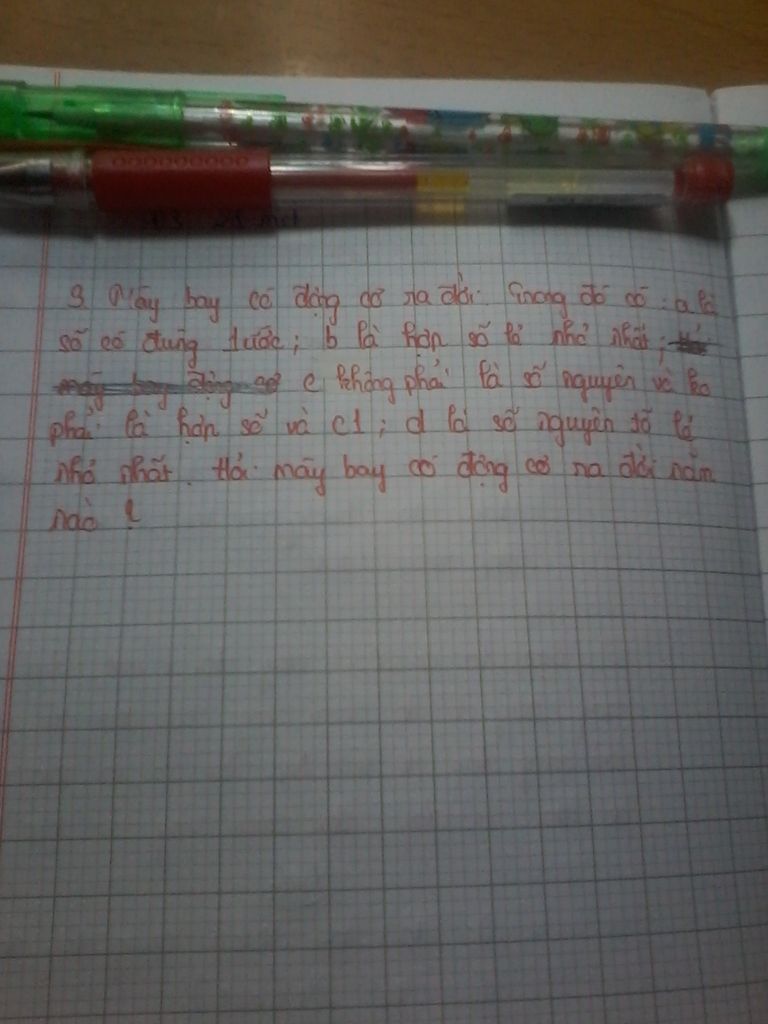 3 Máy bay có động cơ ra đời. Trong đó có: a là
số có đung 1 ước; b là hợp số lẻ nhỏ nhất;
c không phải là số nguyên và ko
phải là hợp số và c1; d là số nguyên tố lẻ
nhỏ nhất. Hỏi máy bay có động cơ ra đời năm
nào ?